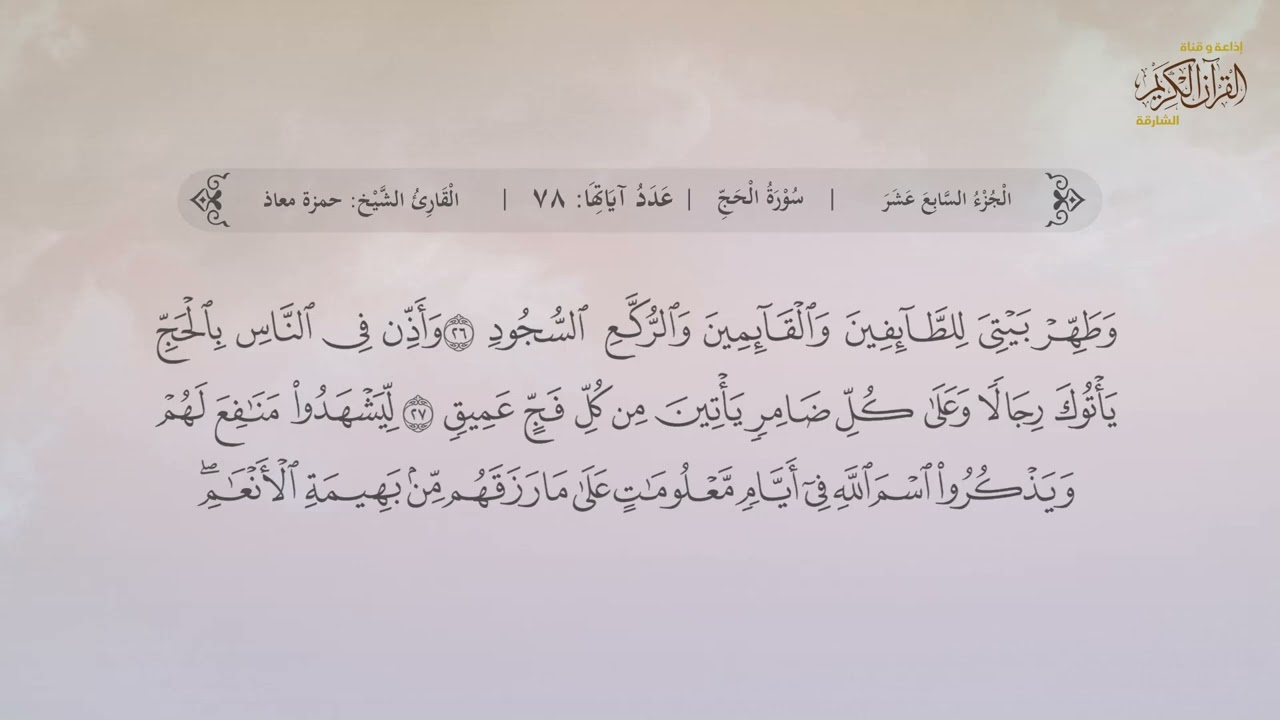 إذاعة و قناة
القرآن الكريم
الشارقة
الْجُزْءُ السَّابِعَ عَشَرَ | سُوْرَةُ الْحَجِّ | عَدَدُ آيَاتِهَا: ٧٨ | الْقَارِئُ الشَّيْخ: حمزة معاذ
وَطَهِّرۡ بَيۡتِيَ لِلطَّآئِفِينَ وَٱلۡقَآئِمِينَ وَٱلرُّكَّعِ ٱلسُّجُودِ ٢٦ وَأَذِّن فِي ٱلنَّاسِ بِٱلۡحَجِّ
يَأۡتُوكَ رِجَالٗا وَعَلَىٰ كُلِّ ضَامِرٖ يَأۡتِينَ مِن كُلِّ فَجٍّ عَمِيقٖ ٢٧ لِّيَشۡهَدُواْ مَنَٰفِعَ لَهُمۡ
وَيَذۡكُرُواْ ٱسۡمَ ٱللَّهِ فِيٓ أَيَّامٖ مَّعۡلُومَٰتٍ عَلَىٰ مَا رَزَقَهُم مِّنۢ بَهِيمَةِ ٱلۡأَنۡعَٰمِۖ